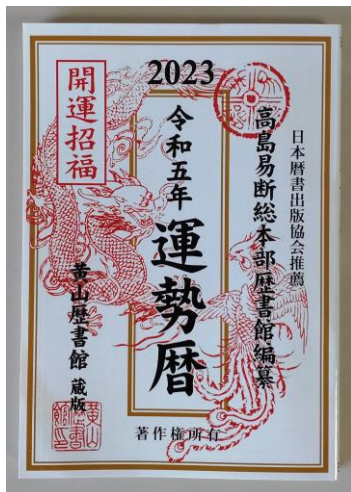 2023
日本暦書出版協会推薦
高島易断総本部歴書館編纂
令和五年
運勢暦
開運招福
黄山歴書館 蔵版
著作権所有